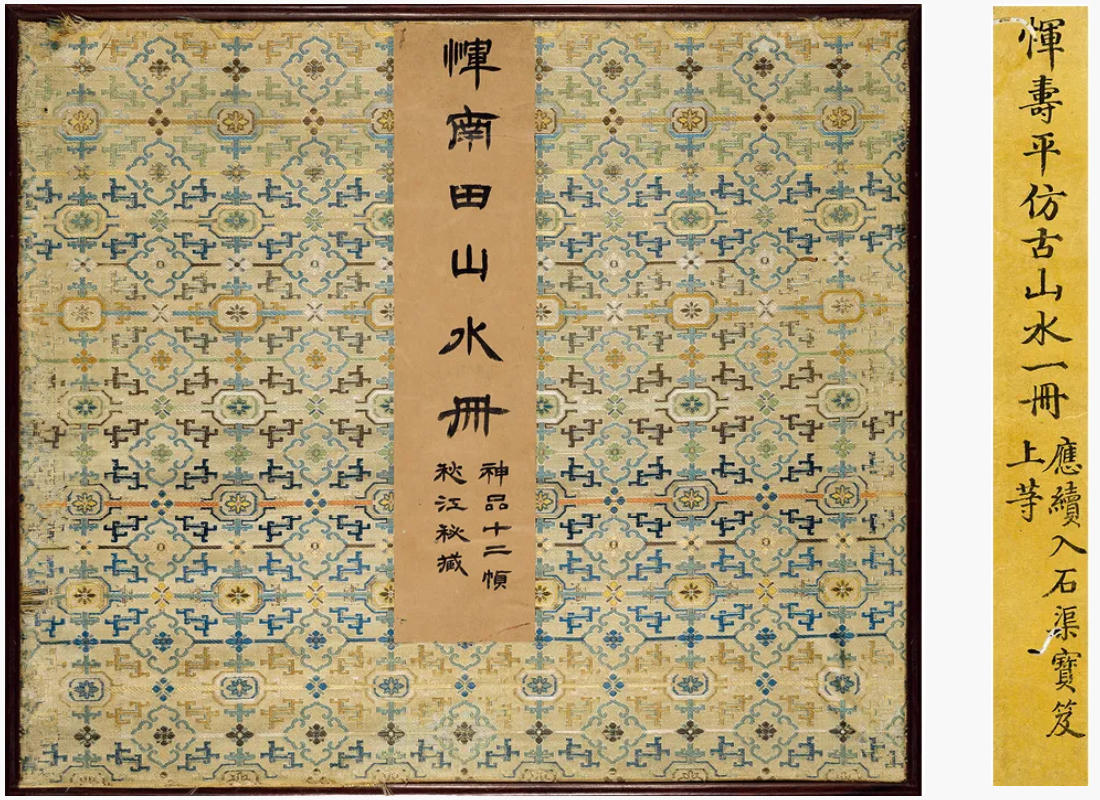 惲南田山水冊
神品十二幀
秋江秘藏
惲壽平仿古山水一冊
應續入石渠寶笈
上等